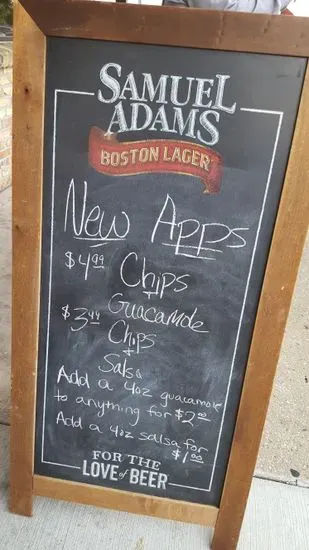 SAMUEL
ADAMS
BOSTON LAGER
New Apps
$4.99 Chips
+
Guacamole
$3.49 Chips
+
Salsa
Add a 4oz guacamole
to anything for $2.00
Add a 4oz salsa for
$1.00
FOR THE
LOVE of BEER